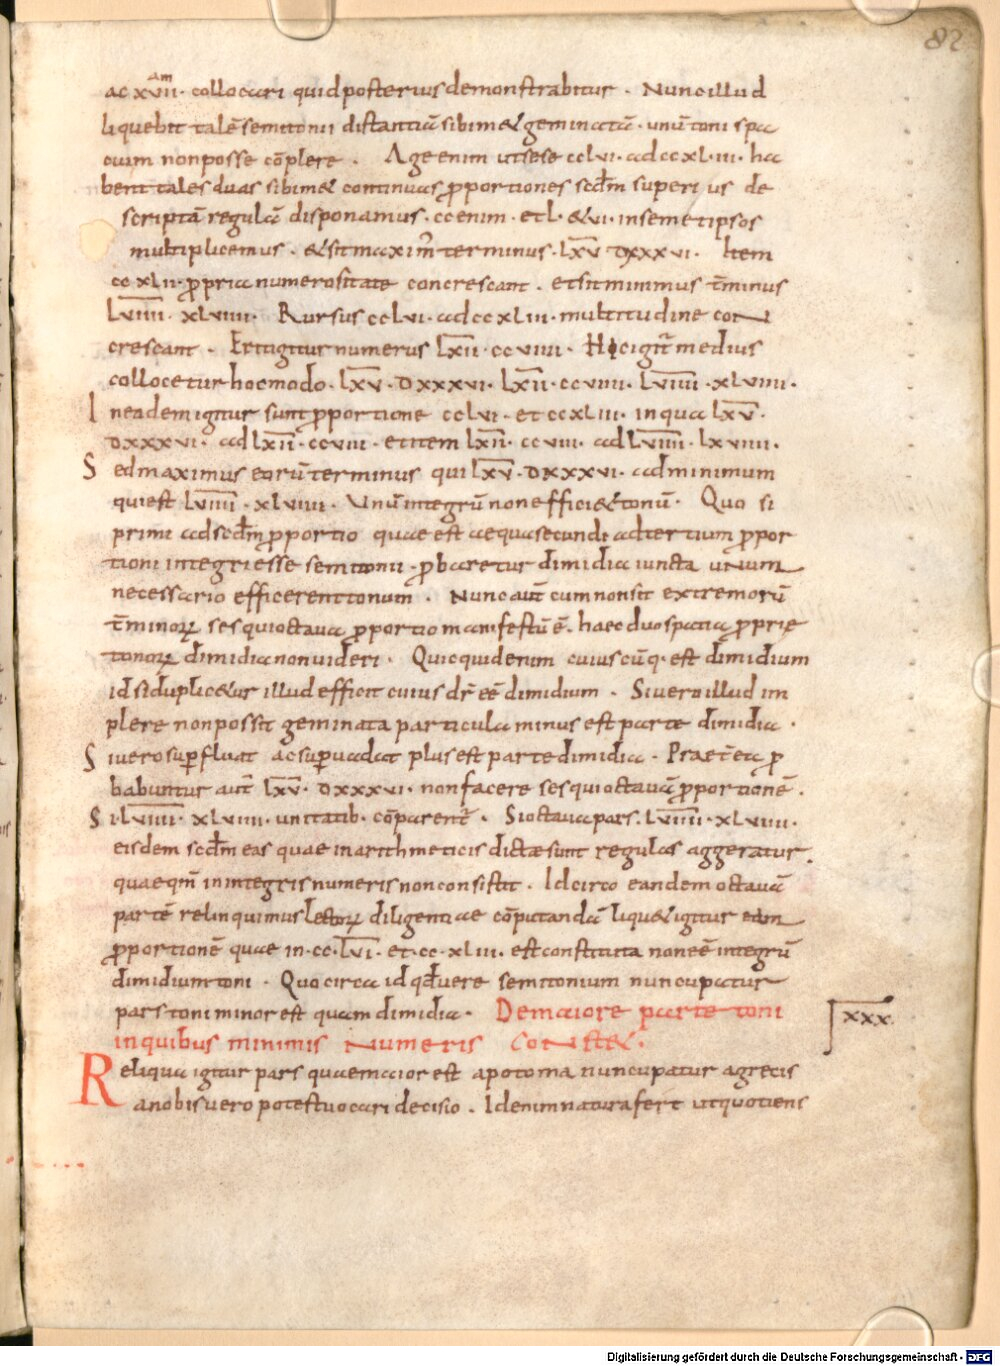 82
ac xvii am. collocari quid posterius demonstrabitur. Nunc illud
liquebit talē semitonii distantiā sibimet geminatā. unū toni spa
cium non posse cōplere. Age enim ut sese cclvi. ad ccxliii. ha
bent tales duas sibimet continuas proportiones scdm superius de
scriptā regulā disponamus. cc enim. et l. et vi. in semet ipsos
multiplicemus. et sit maxim' terminus. lxv dxxxvi. Item
ccxlii. propria numerositate concrescant. et sit minimus t̄minus
lviiii. xlviiii. Rursus cclvi. ad ccxliii. multitudine con
crescant. Et fit igitur numerus lxii. ccviii. Hic igit' medius
collocetur hoc modo. lxv. dxxxvi. lxii. ccviii. lviiii. xlviiii.
In eadem igitur sunt proportione cclvi. et ccxliii. in qua lxv.
dxxxvi. ad lxii. ccviii. et item lxii. ccviii. ad lviiii. lxviiii.
Sed maximus eorū terminus qui lxv. dxxxvi. ad minimum
qui est lviiii. xlviiii. Unū integrū non efficiet tonū. Quo si
primi ad scdm proportio quae est aequa secunde ad tertium propor
tioni integri esse semitonii. probaretur dimidia iuncta unum
necessario efficerent tonum. Nunc aut cum non sit extremorū
t̄minorꝝ sesquioctava proportio manifestū ē. haec duo spatia proprie
tonorꝝ dimidia non videri. Quicquid enim cuiuscūq. est dimidium
id si duplicetur illud efficit cuius dr̄ eē dimidium. Si vero illud im
plere non possit geminata particula minus est parte dimidia.
Si vero supfluat ac supvadat plus est parte dimidia. Praet̄ea pro
babuntur aut lxv. dxxxvi. non facere sesquioctavā proportionē.
Si. lviiii. xlviiii. unitatib. cōparent'. Si octava pars. lviiii. xlviiii.
eisdem scdm eas quae in arithmeticis dictae sunt regulas aggeratur.
quae qm̄ in integris numeris non consistit. Idcirco eandem octavā
partē relinquimus lectorꝝ diligentiae cōputandā liquet igitur eam
proportionē quae in. cc. lvi. et. cc. xliii. est constituta non eē integrū
dimidium toni. Quocirca id qd vere semitonium nuncupatur
pars toni minor est quam dimidia. De maiore parte toni
xxx
in quibus minimis Numeris Constet.
Reliqua igitur pars quae maior est apotoma nuncupatur a grecis
a nobis vero potest vocari decisio. Id enim natura fert ut quotiens
Digitalisierung gefördert durch die Deutsche Forschungsgemeinschaft - DFG